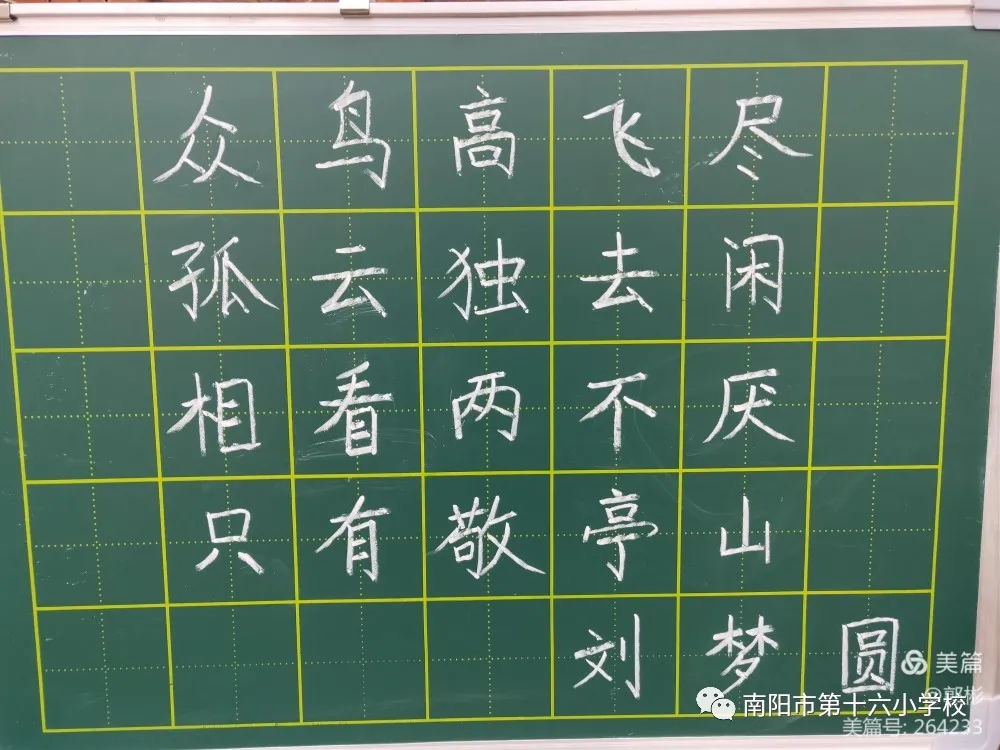 众鸟高飞尽
孤云独去闲
相看两不厌
只有敬亭山
刘梦圆
美篇
@郭彬
南阳市第十六小学校
美篇号: 264233